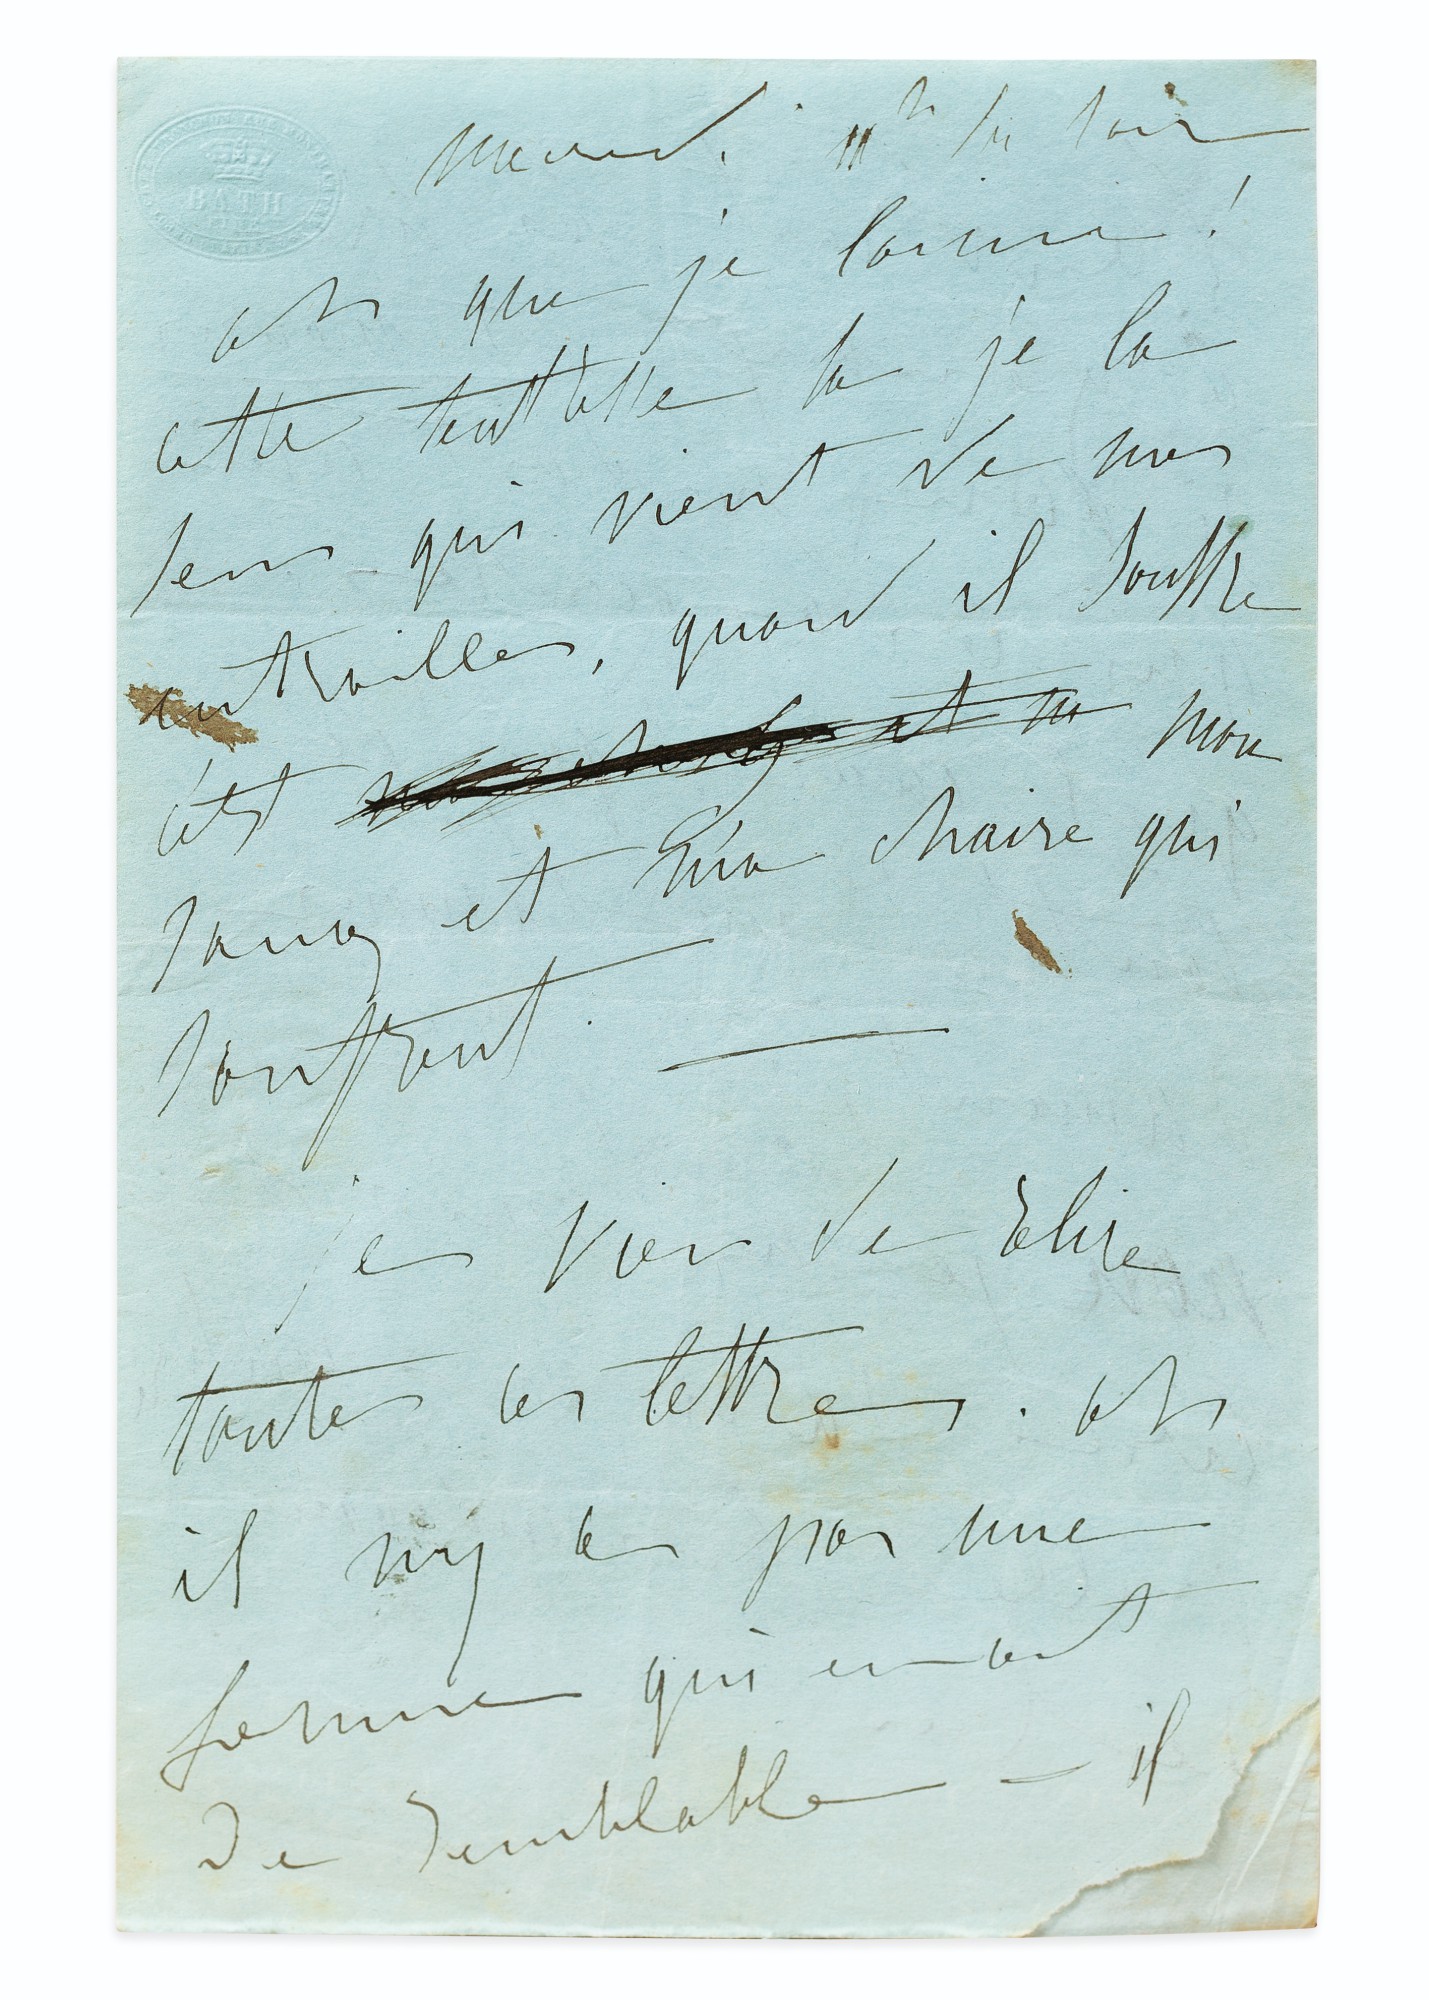 BATH
mercredi. 11h du soir
oh que je l'aime!
cette tendresse la je la
sens qui vient de mes
entrailles, quand il souffre
c'est mon
sang et ma chaire qui
souffrent. —
je vien de relire
toutes ces lettres. oh
il n'y a pas une
femme qui en ait
de semblable — il